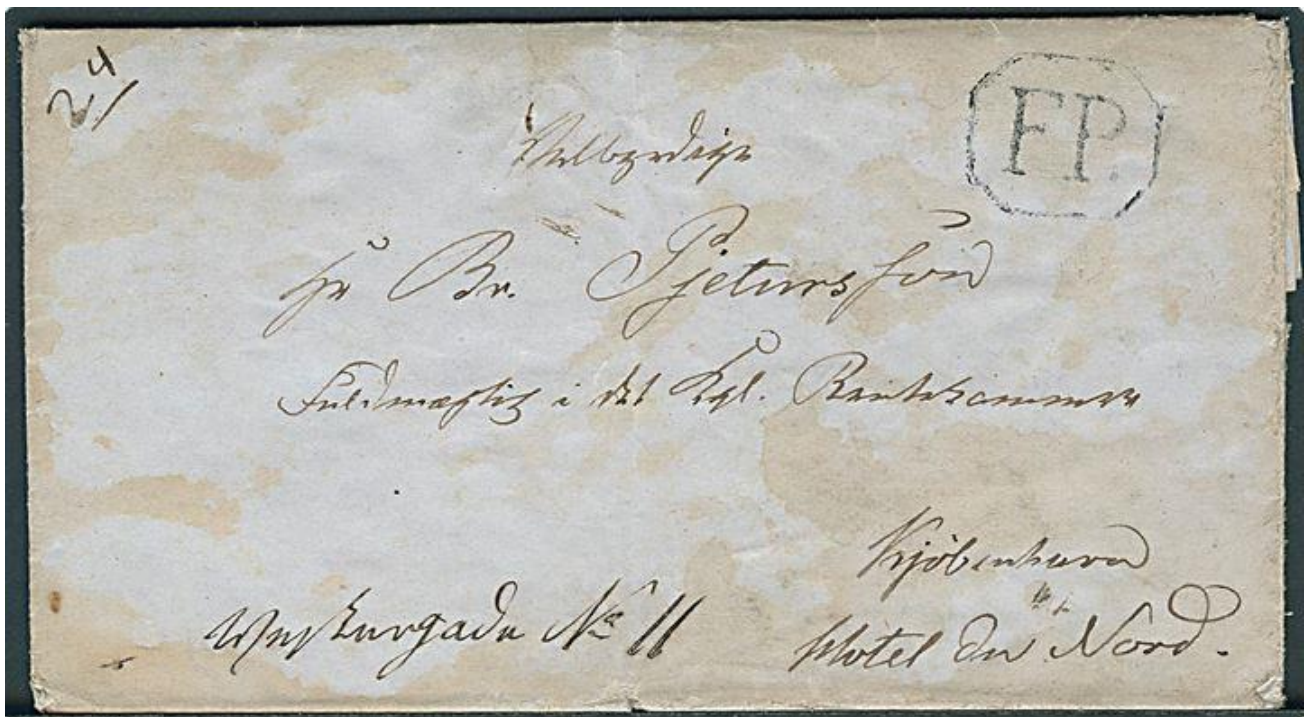 24/
FP.
Velbyrdige
Hr Br. Pjetursson
Fuldmægtig i det Kgl. Rentekammer
Kjöbenhavn
Hotel du Nord.
Vestergade No 11